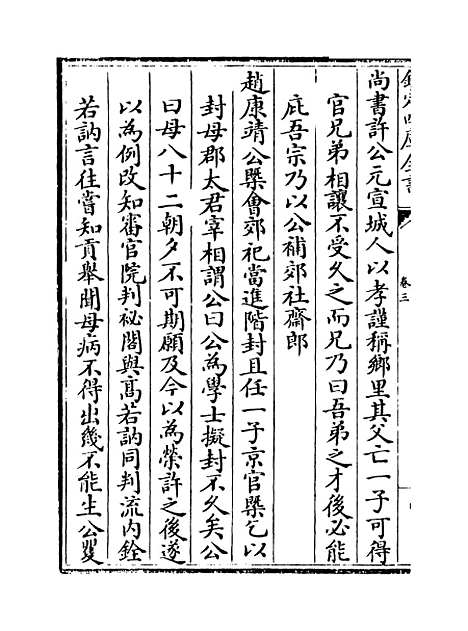 欽定四庫全書
卷三
尚書許公元宣城人以孝謹稱鄉里其父亡一子可得
官兄弟相讓不受久之而兄乃曰吾弟之才後必能
庇吾宗乃以公補郊社齋郎
趙康靖公槩會郊祀當進階封且任一子京官槩乞以
封母郡太君宰相謂公曰公為學士擬封不久矣公
曰母八十二朝夕不可期願及今以為榮許之後遂
以為例改知審官院判祕閣與高若訥同判流内銓
若訥言往嘗知貢舉聞母病不得出幾不能生公矍